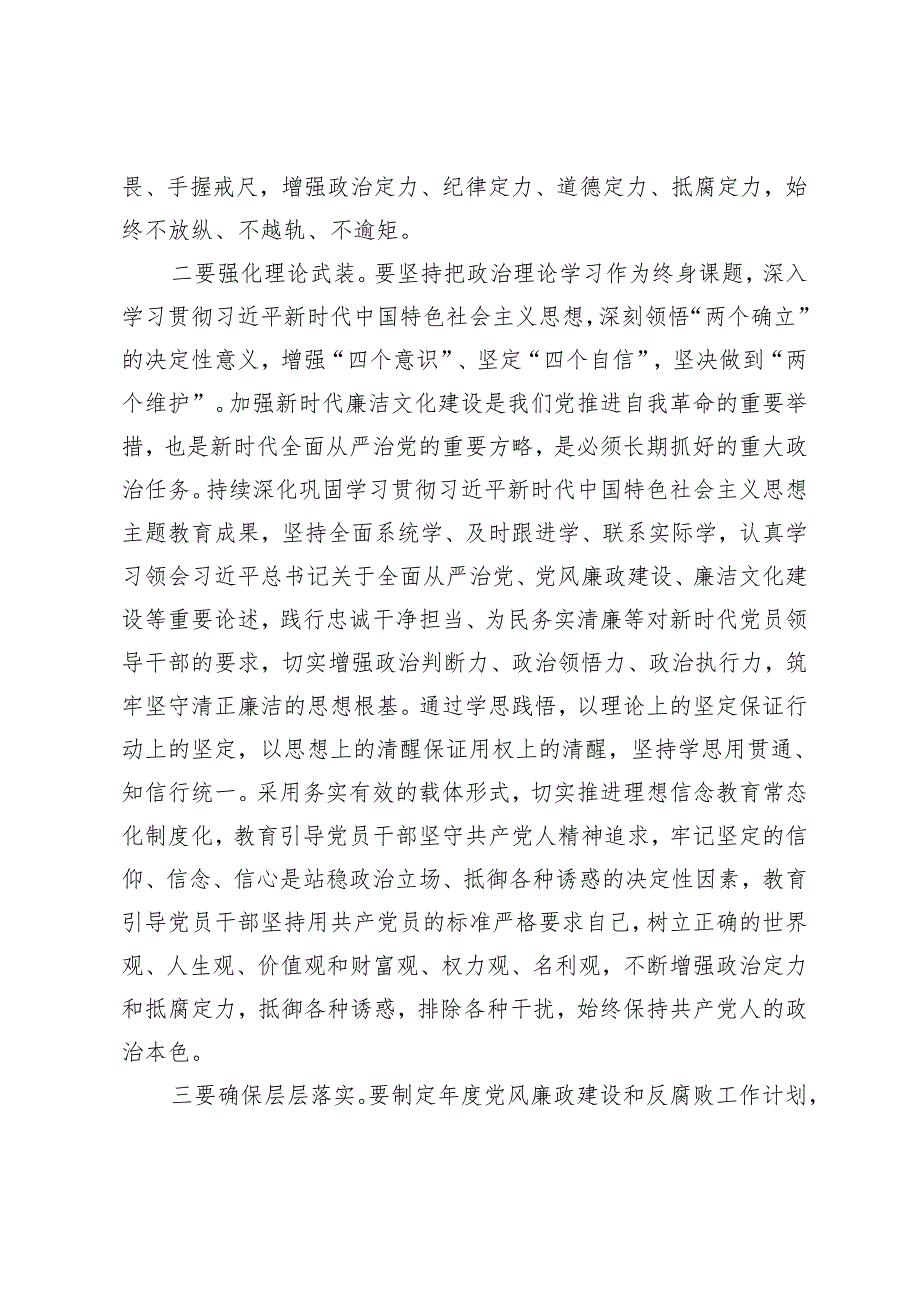 畏、手握戒尺，增强政治定力、纪律定力、道德定力、抵腐定力，始
终不放纵、不越轨、不逾矩。
二要强化理论武装。要坚持把政治理论学习作为终身课题，深入
学习贯彻习近平新时代中国特色社会主义思想，深刻领悟“两个确立”
的决定性意义，增强“四个意识”、坚定“四个自信”，坚决做到“两
个维护”。加强新时代廉洁文化建设是我们党推进自我革命的重要举
措，也是新时代全面从严治党的重要方略，是必须长期抓好的重大政
治任务。持续深化巩固学习贯彻习近平新时代中国特色社会主义思想
主题教育成果，坚持全面系统学、及时跟进学、联系实际学，认真学
习领会习近平总书记关于全面从严治党、党风廉政建设、廉洁文化建
设等重要论述，践行忠诚干净担当、为民务实清廉等对新时代党员领
导干部的要求，切实增强政治判断力、政治领悟力、政治执行力，筑
牢坚守清正廉洁的思想根基。通过学思践悟，以理论上的坚定保证行
动上的坚定，以思想上的清醒保证用权上的清醒，坚持学思用贯通、
知信行统一。采用务实有效的载体形式，切实推进理想信念教育常态
化制度化，教育引导党员干部坚守共产党人精神追求，牢记坚定的信
仰、信念、信心是站稳政治立场、抵御各种诱惑的决定性因素，教育
引导党员干部坚持用共产党员的标准严格要求自己，树立正确的世界
观、人生观、价值观和财富观、权力观、名利观，不断增强政治定力
和抵腐定力，抵御各种诱惑，排除各种干扰，始终保持共产党人的政
治本色。
三要确保层层落实。要制定年度党风廉政建设和反腐败工作计划，